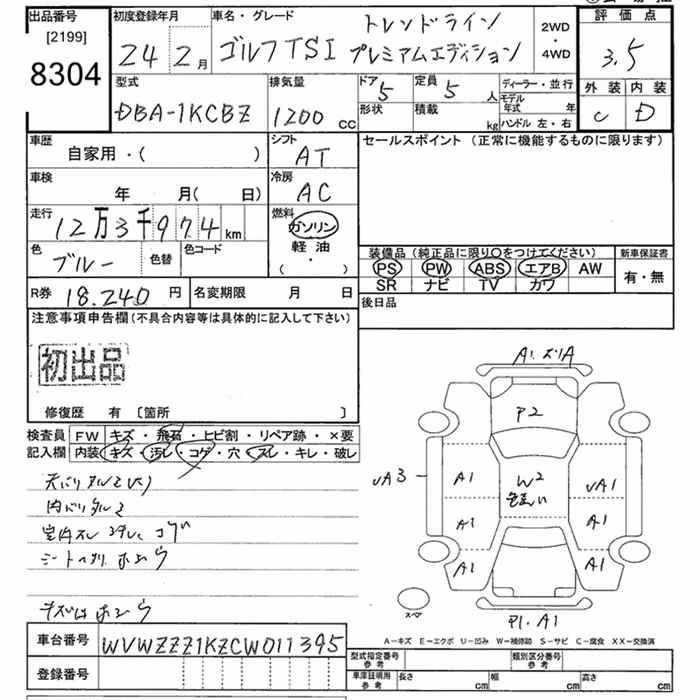 出品番号 初度登録年月 車名・グレード トレンドライン 2WD ・ 4WD 評価点
[2199] 24 年 2月 ゴルフTSI プレミアムエディション 3.5
8304
型式 排気量 ドア 5 定員 5 人 ディーラー・並行 外装 内装
DBA-1KCBZ 1200 cc 形状 積載 kg モデル年式 年 C D
ハンドル 左・右
車歴 シフト セールスポイント (正常に機能するものに限ります)
自家用・( ) AT
車検 冷房
年 月( 日) AC
走行 燃料
12万3千974km ガソリン
色 色替 色コード 軽油
ブルー ( ・ )
装備品 (純正品に限り〇をつけてください) 新車保証書
PS PW ABS エアB AW 有・無
SR ナビ TV カワ
R券 18.240 円 名変期限 月 日
後日品
注意事項申告欄(不具合内容等は具体的に記入して下さい)
初出品
修復歴 有 〔箇所 〕
検査員 FW キズ・飛石・ヒビ割・リペア跡・×要
記入欄 内装 キズ・汚レ・コゲ・穴・スレ・キレ・破レ
A1.
P2
UA3
A1 W2 UA1
A1 A1
A1 A1
スペア
P1.A1
A-キズ E-エクボ U-凹み W-補修跡 S-サビ C-腐食 XX-交換済
車台番号 WVWZZZ1KZCW011395
登録番号
型式指定番号 参考 類別区分番号 参考
車庫証明用 参考 長さ cm 幅 cm 高さ cm